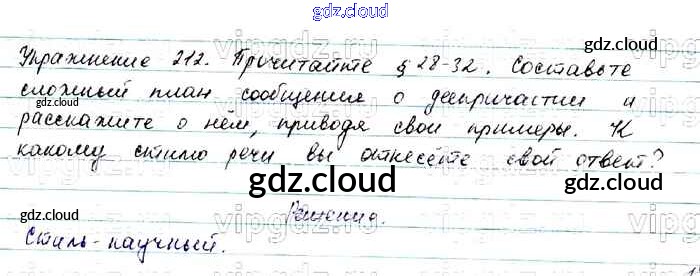 gdz.cloud
Упражнение 212. Прочитайте § 28-32. Составьте
сложный план сообщения о деепричастии и
расскажите о нём, приводя свои примеры. К
какому стилю речи вы отнесёте свой ответ?
gdz.cloud
Решение.
Стиль-научный.